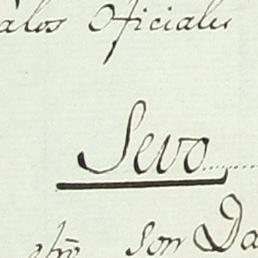 àlos Oficiales
Sevo
son Da